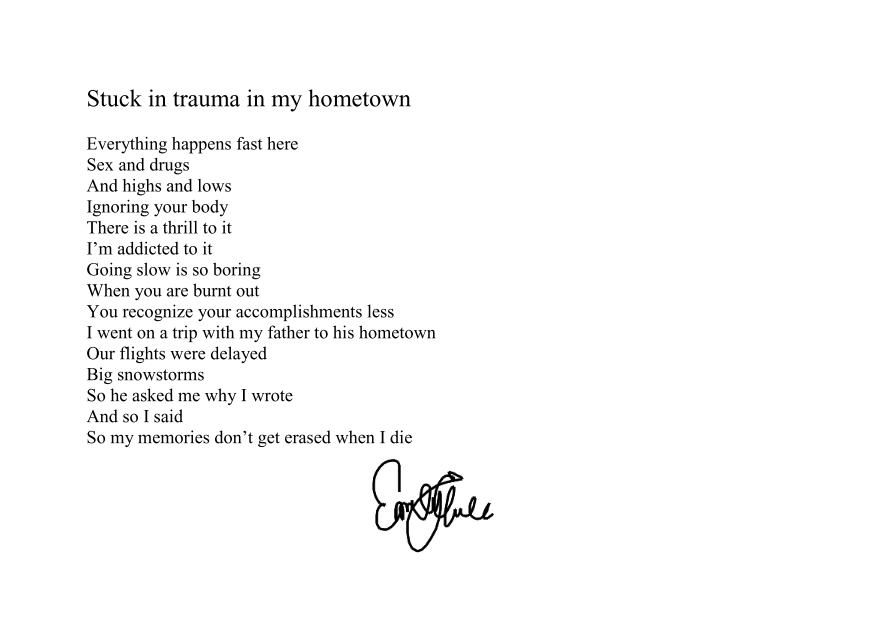 Stuck in trauma in my hometown
Everything happens fast here
Sex and drugs
And highs and lows
Ignoring your body
There is a thrill to it
I’m addicted to it
Going slow is so boring
When you are burnt out
You recognize your accomplishments less
I went on a trip with my father to his hometown
Our flights were delayed
Big snowstorms
So he asked me why I wrote
And so I said
So my memories don’t get erased when I die